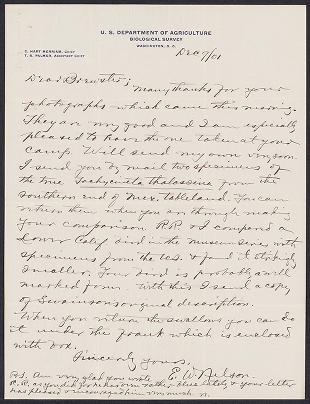 U. S. DEPARTMENT OF AGRICULTURE
BIOLOGICAL SURVEY
WASHINGTON, D. C.
C. HART MERRIAM, CHIEF
T. S. PALMER, ASSISTANT CHIEF
Dec 7/01
Dear Brewster;
Many thanks for your
photographs which came this morning.
They are very good and I am especially
pleased to have the one taken at your
camp. Will send my own very soon.
I send you by mail two specimens of
the true Tachycineta thalassina from the
southern end of Mex. tableland. You can
return them when you are through making
your comparison. R.R. & I compared a
Lower Calif. bird in the museum series with
specimens from the U.S. & find it strikingly
smaller. Your bird is probably a well
marked form. With this I send a copy
of Swainson's original description.
When you return the swallows you can do
it under the frank which is enclosed
with box.
Sincerely yours,
E. W. Nelson.
P.S. Am very glad you wrote
R.R. as you did for he has been rather blue lately & your letter
has pleased & encouraged him very much. n.